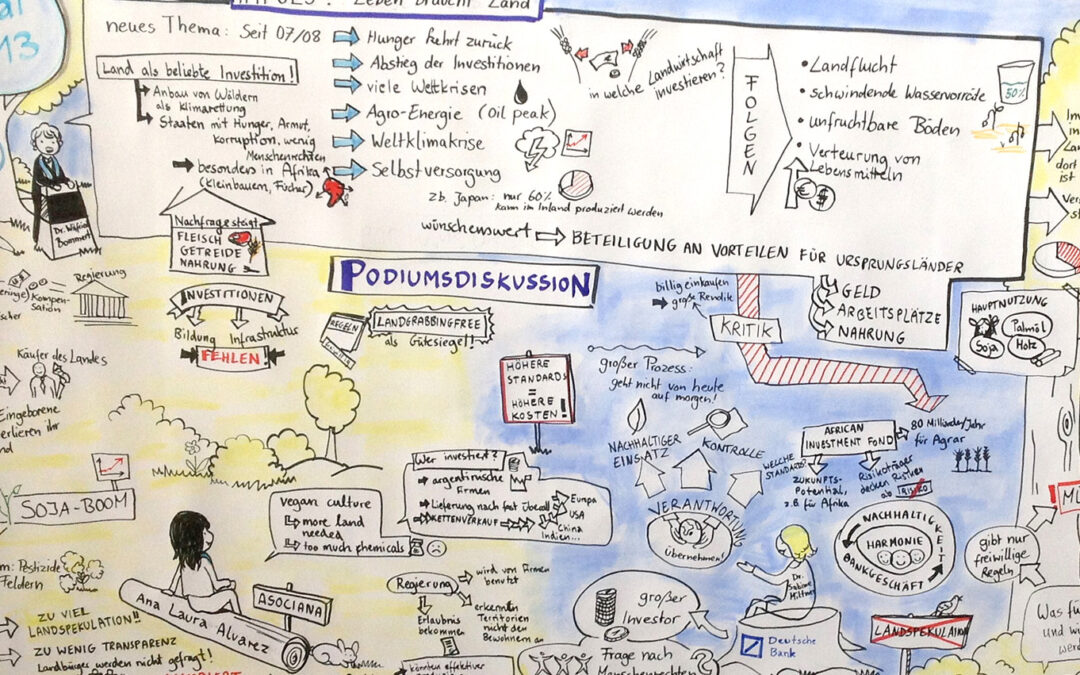 13
Leben braucht Land
neues Thema: Seit 07/08
Hunger kehrt zurück
Abstieg der Investitionen
viele Weltkrisen
Agro-Energie (Oil peak)
Weltklimakrise
Selbstversorgung
zb. Japan: nur 60%
kann im Inland produziert werden
Land als beliebte Investition!
Anbau von Wäldern
als Klimarettung
Staaten mit Hunger, Armut,
Korruption, wenig
Menschenrechten
besonders in Afrika
(Kleinbauern, Fischer)
in welche Landwirtschaft
investieren?
FOLGEN
• Landflucht
• schwindende Wasservorräte
• unfruchtbare Böden
• Verteurung von
Lebensmitteln
50%
€ $
wünschenswert
BETEILIGUNG AN VORTEILEN FÜR URSPRUNGSLÄNDER
GELD
ARBEITSPLÄTZE
NAHRUNG
Dr. Wilfried
Bommert
Nachfrage steigt
FLEISCH
GETREIDE
NAHRUNG
INVESTITIONEN
Bildung Infrastruktur
FEHLEN!
Regierung
Kompen-
sation
Käufer des Landes
Eingeborene
verlieren ihr
PODIUMSDISKUSSION
REGELN
LANDGRABBINGFREE
als Gütesiegel!!
HÖHERE
STANDARDS
=
HÖHERE
KOSTEN!
billig einkaufen
große Rendite
KRITIK
großer Prozess:
geht nicht von heute
auf morgen!
HAUPTNUTZUNG
Soja
Palmöl
Holz
NACHHALTIGER
EINSATZ
KONTROLLE
WELCHE
STANDARDS?
VERANTWORTUNG
Übernehmen!
AFRICAN
INVESTMENT FOND
80 Milliarde/Jahr
für Agrar
ZUKUNFTS-
Potential,
z.B. für Afrika
Risikoträger
decken Risiken
ab
RISIKO
NACHHALTIGKEIT
HARMONIE
BANKGESCHÄFT
gibt nur
freiwillige
Regeln
SOJA-BOOM
Pestizide
Feldern
ZU VIEL
LANDSPEKULATION!!
ZU WENIG TRANSPARENZ
Landbürger werden nicht gefragt!
Ana Laura Alvarez
ASOCIANA
vegan culture
more land
needed
too much chemicals
Wer investiert?
argentinische
Firmen
Lieferung nach fast überall
KETTENVERKAUF
Europa
USA
China
Indien...
Regierung
wird von Firmen
benutzt
Erlaubnis
bekommen
erkennen
Territorien
nicht den
Bewohnern an
könnten effektiver
großer
Investor
Frage nach
Menschenrechten
?
Dr.
Sabine
Miltner
Deutsche
Bank
LANDSPEKULATION
Was